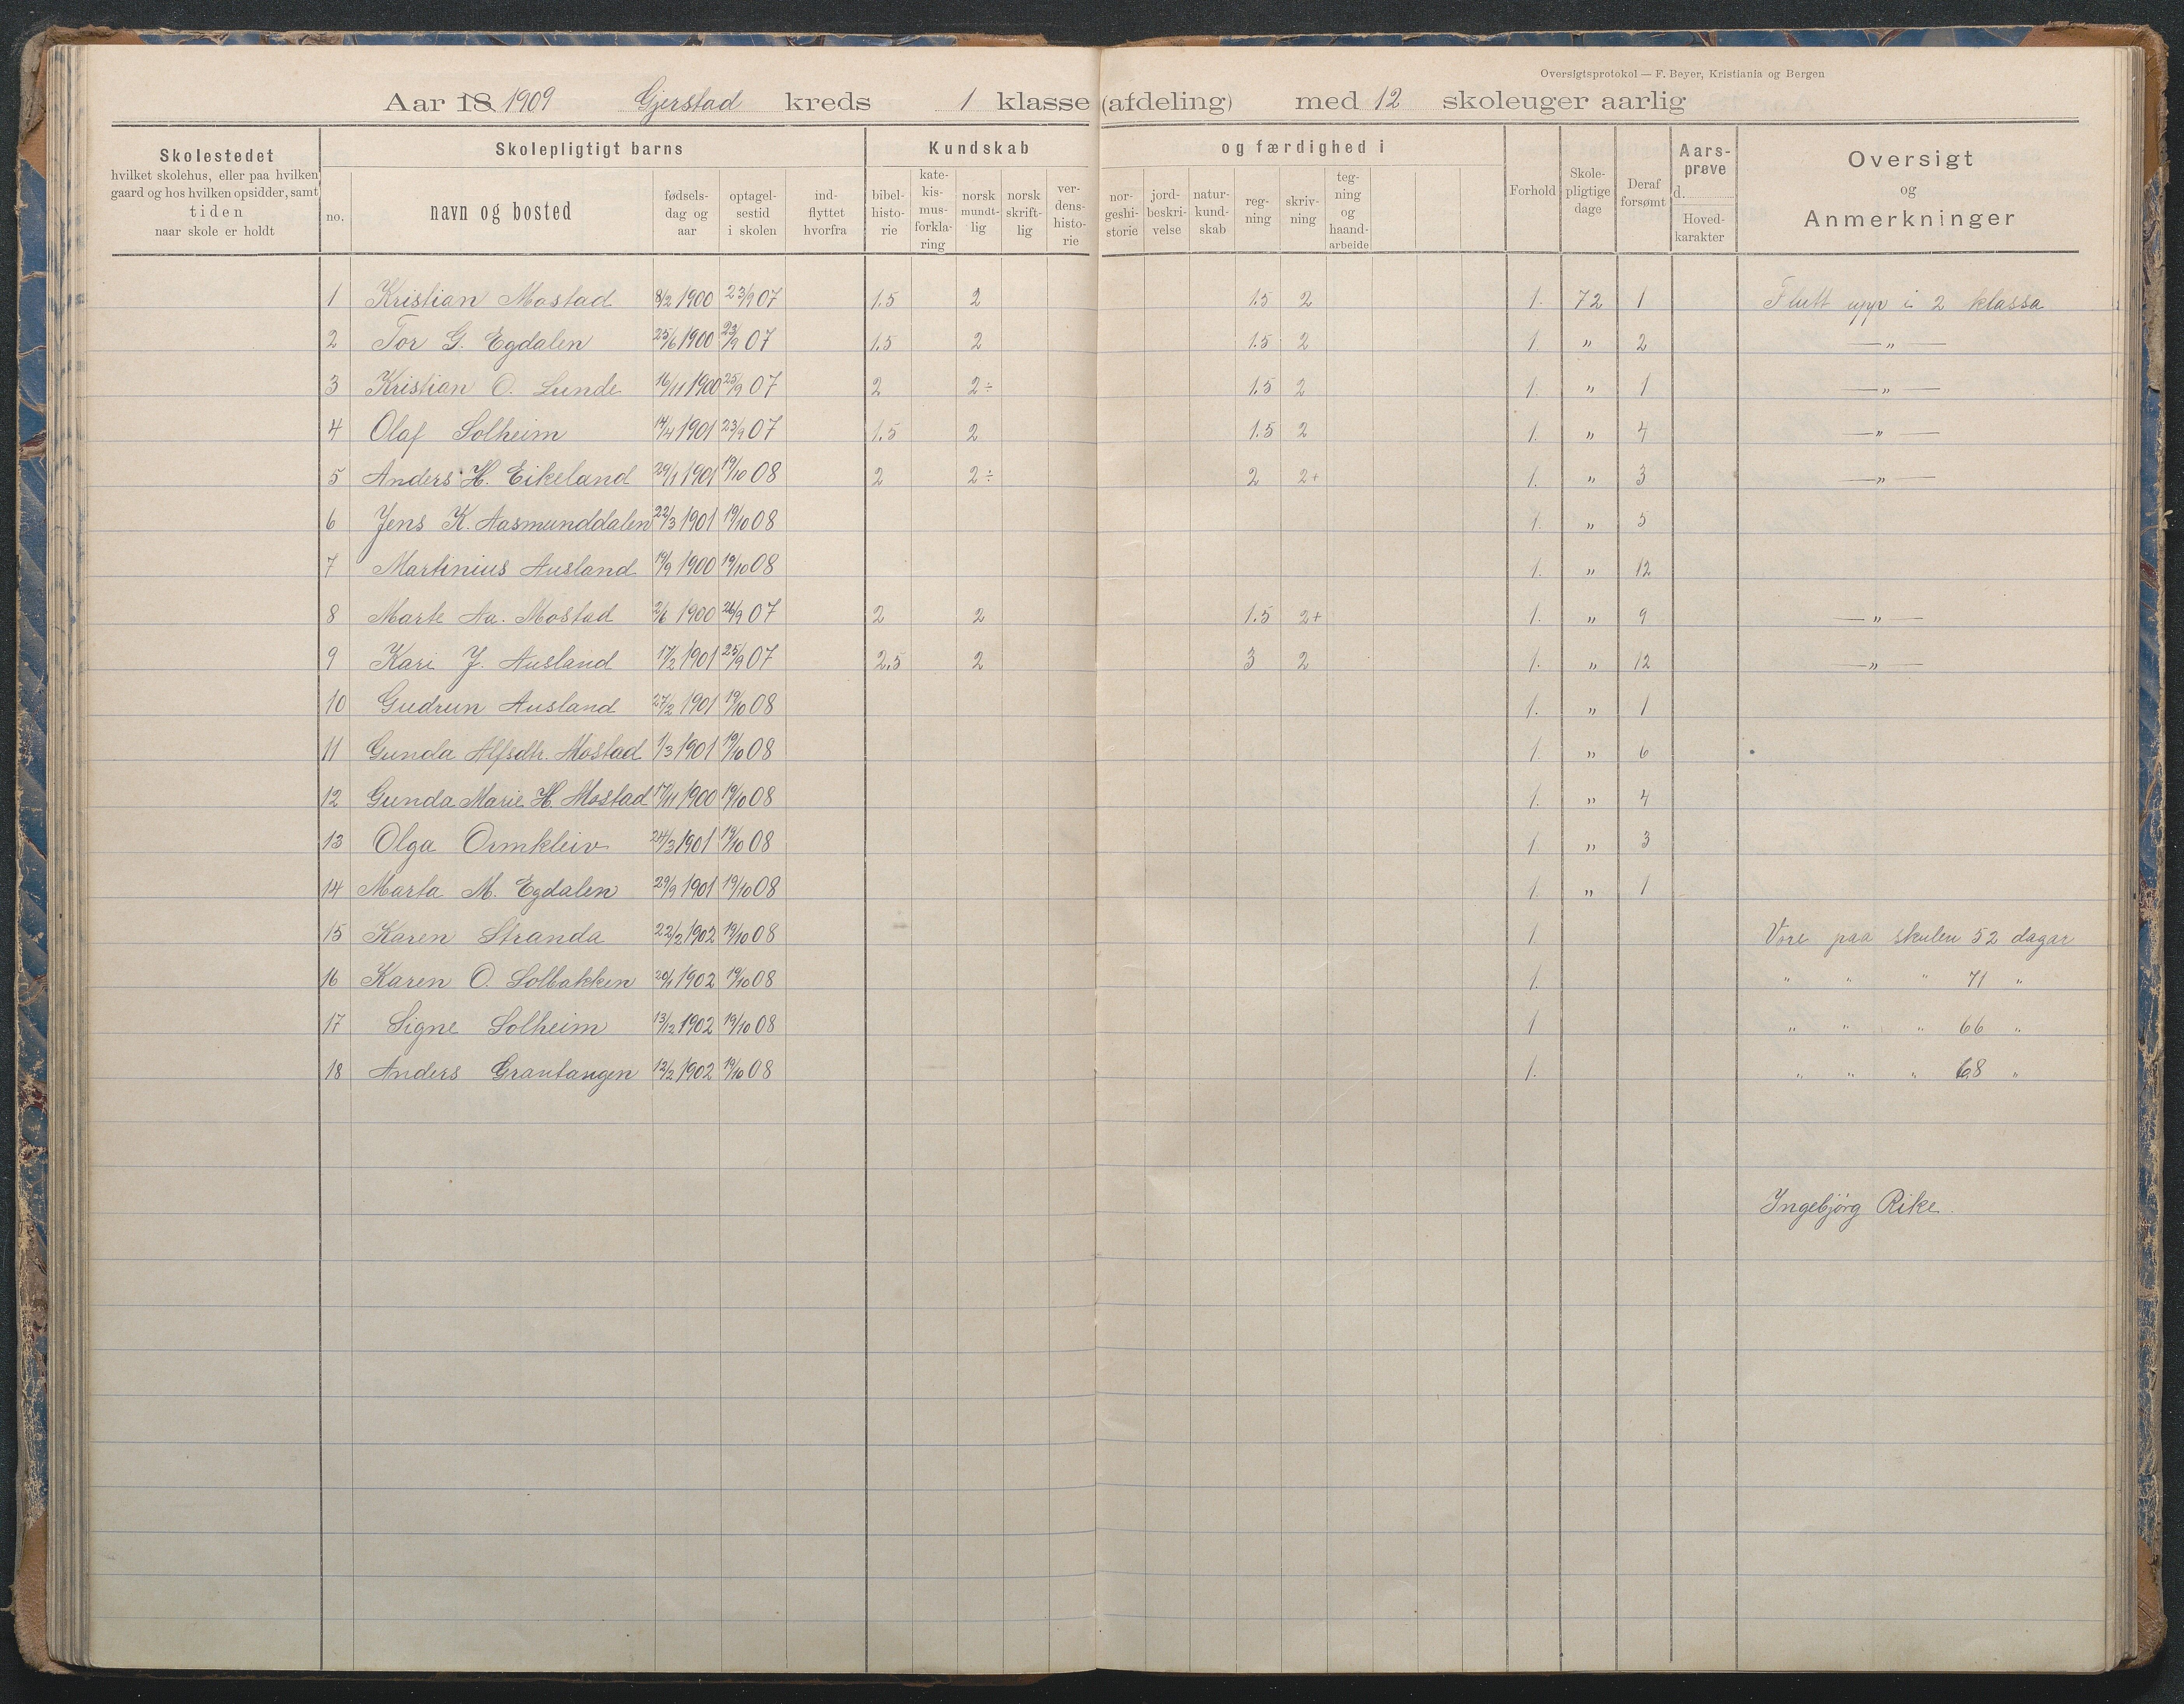 Oversigtsprotokol — F. Beyer, Kristiania og Bergen
Aar 18 1909 Gjerstad kreds 1 klasse (afdeling) med 12 skoleuger aarlig
Skolestedet hvilket skolehus, eller paa hvilken gaard og hos hvilken opsidder, samt tiden naar skole er holdt
Skolepligtigt barns
no.
navn og bosted
fødsels-dag og aar
optagel-sestid i skolen
ind-flyttet hvorfra
Kundskab og færdighed i
bibel-histo-rie
kate-kis-mus-forkla-ring
norsk mundt-lig
norsk skrift-lig
ver-dens-histo-rie
nor-geshi-storie
jord-beskri-velse
natur-kund-skab
reg-ning
skriv-ning
teg-ning og haand-arbeide
Forhold
Skole-pligtige dage
Deraf forsømt
Aars-prøve d.
Hoved-karakter
Oversigt og Anmerkninger
1 Kristian Mostad 8/2 1900 23/9 07 1.5 2 1.5 2 1. 72 1 Flutt upp i 2 klassa
2 Tor G. Egdalen 25/6 1900 23/9 07 1.5 2 1.5 2 1 " 2 — " —
3 Kristian O. Lunde 16/11 1900 25/9 07 2 2÷ 1.5 2 1. " 1 — " —
4 Olaf Solheim 14/4 1901 23/9 07 1.5 2 1.5 2 1. " 4 — " —
5 Anders H. Eikeland 29/1 1901 19/10 08 2 2÷ 2 2+ 1. " 3 — " —
6 Jens K. Aasmunddalen 22/3 1901 19/10 08 1. " 5
7 Martinius Ausland 19/9 1900 19/10 08 1. " 12
8 Marte Aa. Mostad 2/6 1900 26/9 07 2 2 1.5 2+ 1. " 9 — " —
9 Kari J. Ausland 17/2 1901 25/9 07 2,5 2 3 2 1. " 12 — " —
10 Gudrun Ausland 27/2 1901 19/10 08 1. " 1
11 Gunda Alfsdtr. Mostad 1/3 1901 19/10 08 1. " 6
12 Gunda Marie H. Mostad 17/11 1900 19/10 08 1. " 4
13 Olga Ormkleiv 24/3 1901 19/10 08 1 " 3
14 Marta M. Egdalen 29/9 1901 19/10 08 1. " 1
15 Karen Stranda 22/2 1902 19/10 08 1 Vore paa skulen 52 dagar
16 Karen O. Solbakken 20/1 1902 19/10 08 1. " " " 71 "
17 Signe Solheim 13/12 1902 19/10 08 1 " " " 66 "
18 Anders Grautangen 12/2 1902 19/10 08 1. " " " 68 "
Ingebjørg Rike.